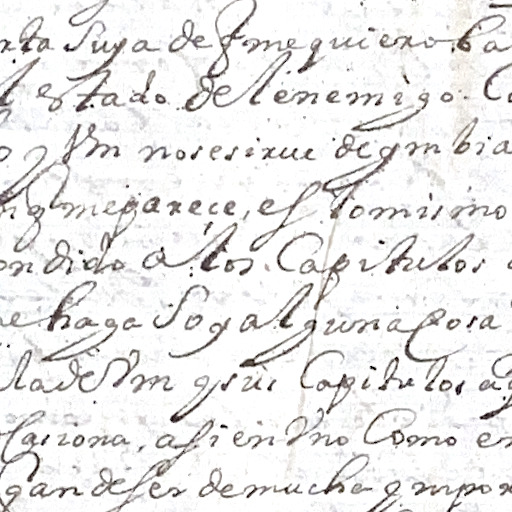 rta Suya de q̃ me quiero ba
l estado del enemigo. Co
o y Vm nos esirue de ymbia
q̃ me pareçe, es lo mismo
ondido a los Capitulos
e haga So yalguna Cosa
la de Vm y sus Capitulos a
Casiona, asi en Vno Como en
gan de ser de mucha ympor